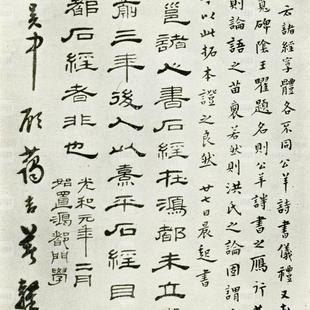 云諸經字體各不同公羊詩書儀禮又
碑陰王瞿題名則公羊詩書之雁行
則論語之苗裔若然則洪氏之論固謂
今以此拓本證之良然 廿七日晨起書
邕諸人書石經在鴻都未立
前三年後人以熹平石經目
都石經者非也
光和元年二月
始置鴻都門學
吳中顧蔼吉